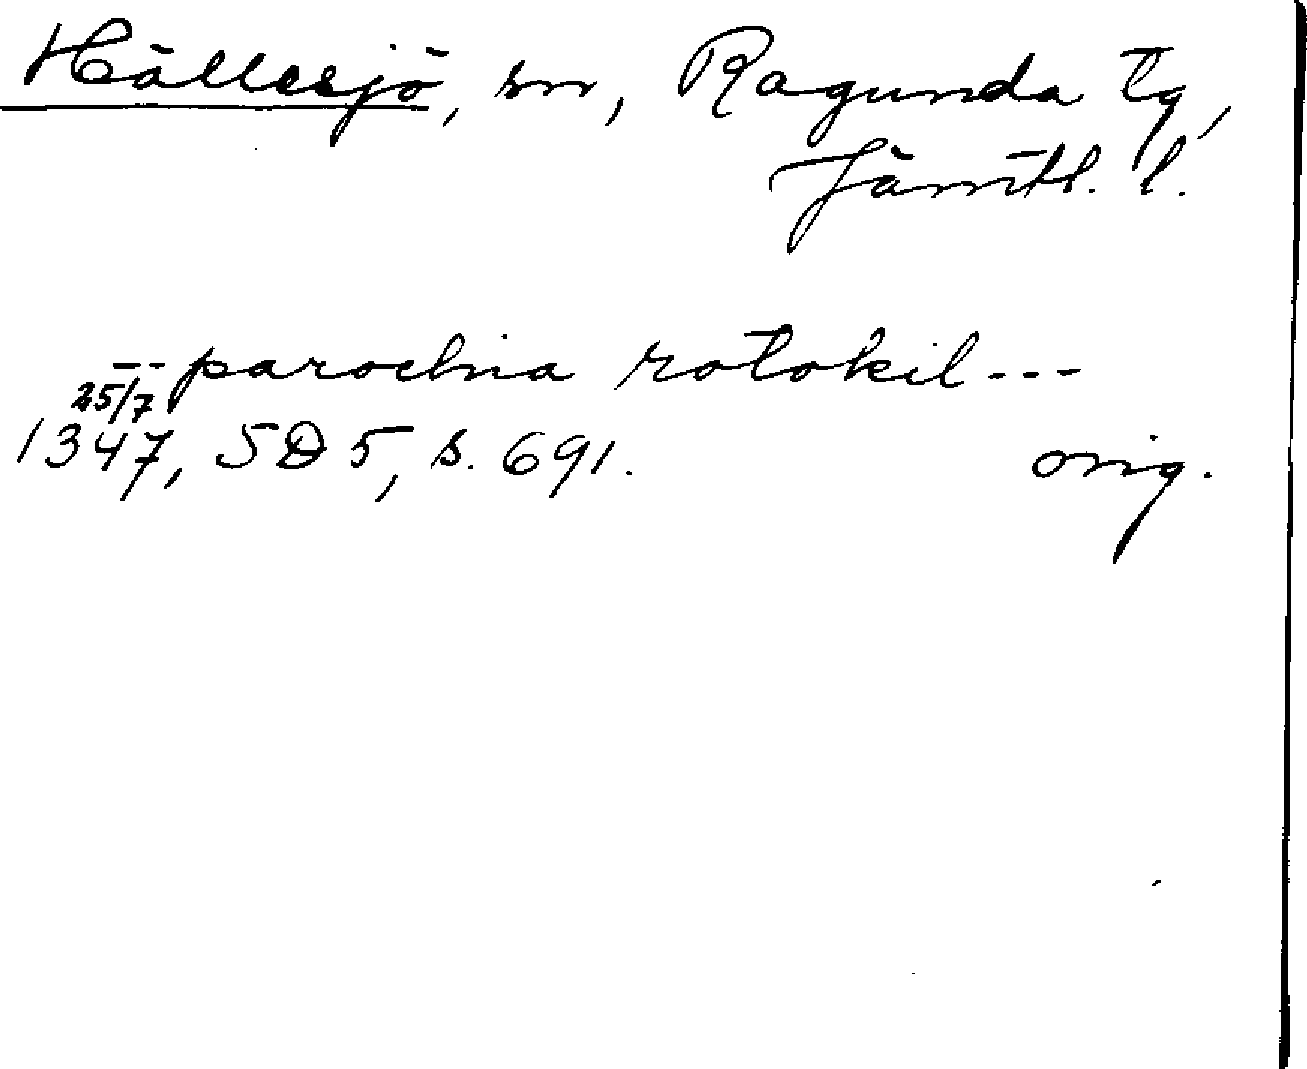 Hällesjö, sn, Ragunda tg,
Jämtl. l.
-- parochia rotokil ---
25/7
1347, SD 5, s. 691. orig.